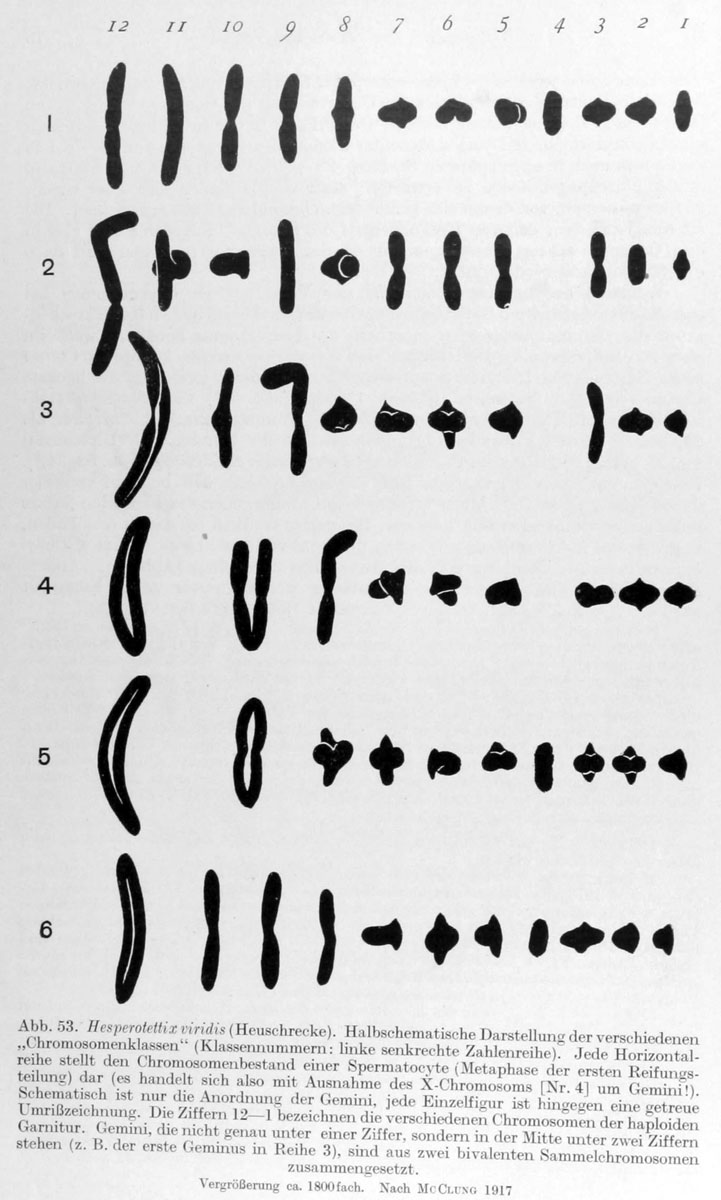 12 11 10 9 8 7 6 5 4 3 2 1
1
2
3
4
5
6
Abb. 53. Hesperotettix viridis (Heuschrecke). Halbschematische Darstellung der verschiedenen
„Chromosomenklassen“ (Klassennummern: linke senkrechte Zahlenreihe). Jede Horizontal-
reihe stellt den Chromosomenbestand einer Spermatocyte (Metaphase der ersten Reifungs-
teilung) dar (es handelt sich also mit Ausnahme des X-Chromosoms [Nr. 4] um Gemini!).
Schematisch ist nur die Anordnung der Gemini, jede Einzelfigur ist hingegen eine getreue
Umrißzeichnung. Die Ziffern 12—1 bezeichnen die verschiedenen Chromosomen der haploiden
Garnitur. Gemini, die nicht genau unter einer Ziffer, sondern in der Mitte unter zwei Ziffern
stehen (z. B. der erste Geminus in Reihe 3), sind aus zwei bivalenten Sammelchromosomen
zusammengesetzt.
Vergrößerung ca. 1800fach. Nach MCCLUNG 1917